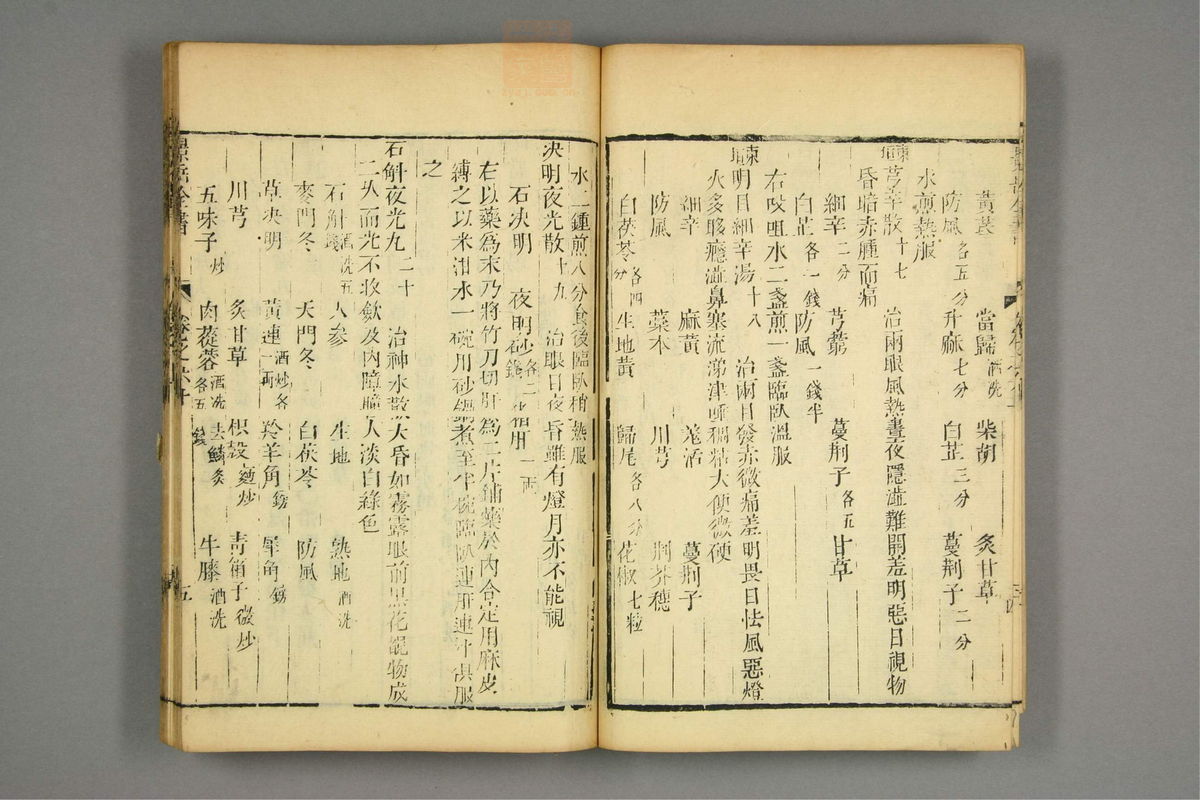 黃芪 當歸酒洗 柴胡 炙甘草
防風各五分 升麻七分 白芷三分 蔓荊子二分
水煎熱服
東垣芎辛散十七 治兩眼風熱晝夜隱澁難開羞明惡日視物
昏暗赤腫而痛
細辛二分 芎藭 蔓荊子各五 甘草
白芷各一錢 防風一錢半
右㕮咀水二盞煎一盞臨臥溫服
東垣明目細辛湯十八 治兩目發赤微痛羞明畏日怯風惡燈
火多眵癮澁鼻塞流涕津唾稠粘大便微硬
細辛 麻黃 羌活 蔓荊子
防風 藁本 川芎 荆芥穗
白茯苓各四分 生地黃 歸尾各八分 花椒七粒
水一鍾煎八分食後臨臥稍熱服
決明夜光散十九 治眼目夜昏雖有燈月亦不能視
石決明 夜明砂各二錢 一兩
右以藥爲末乃將竹刀切肝爲二片鋪藥於內合定用麻皮
縛之以米泔水一碗用砂鍋煮至半碗臨臥連肝連汁俱服
之
石斛夜光丸二十 治神水散大昏如霧露眼前黑花覩物成
二久而光不收歛及內障瞳人淡白綠色
石斛酒洗五錢 人參 生地 熟地酒洗
麥門冬 天門冬 白茯苓 防風
草決明 黃連酒炒各一兩 羚羊角鎊 犀角鎊
川芎 炙甘草 枳殼麵炒 靑箱子微炒
五味子炒 肉蓯蓉酒洗去鱗炙各五錢 牛膝酒洗
景岳全書 卷之六十 五